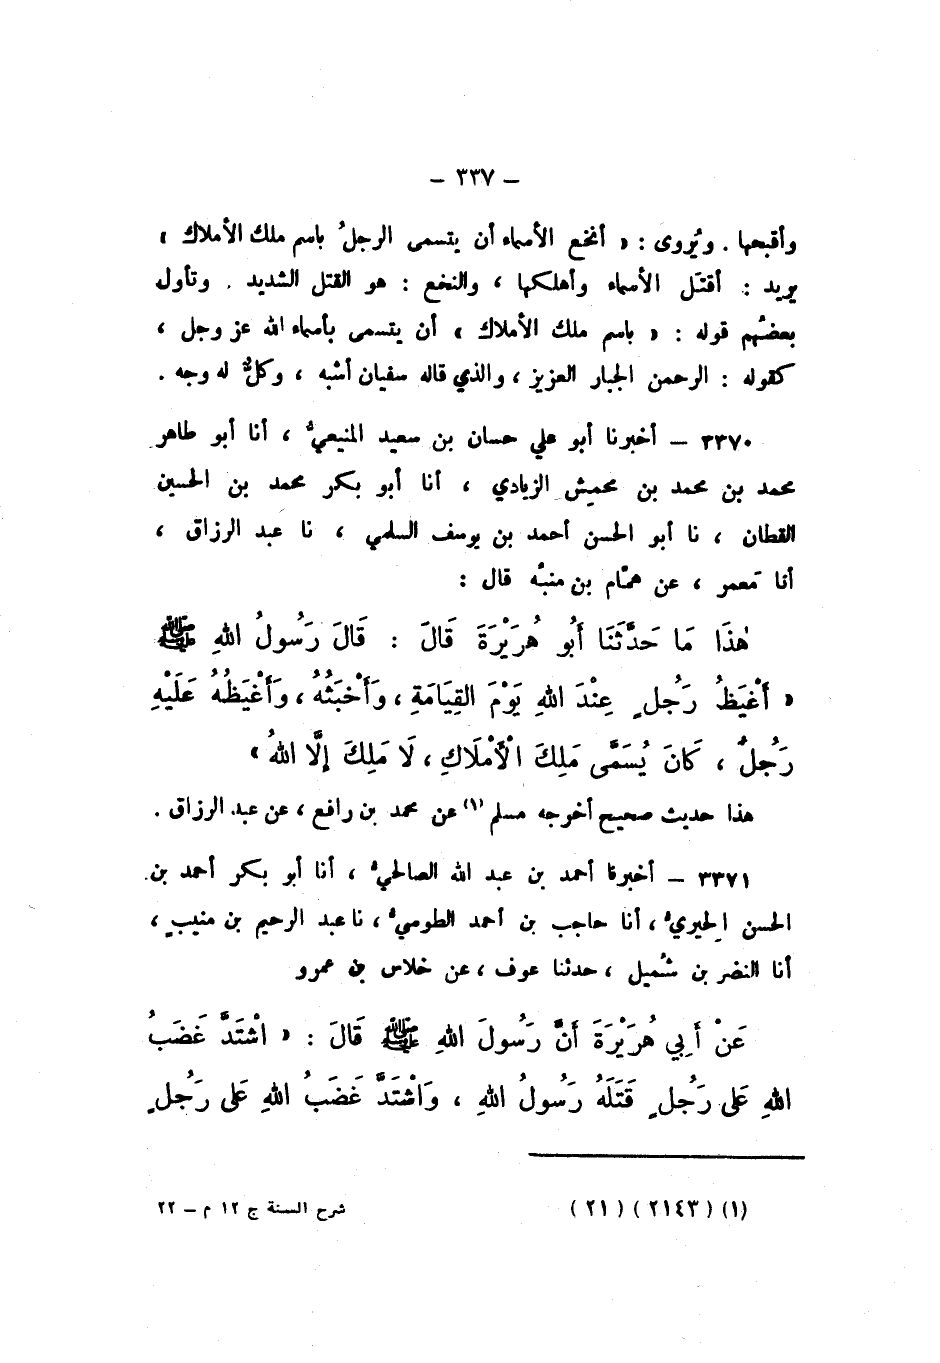 – ٣٣٧ –
وأقبحها . ويُروى : « أنخع الأسماء أن يتسمى الرجلُ باسم ملك الأملاك »
يريد : أقتل الأسماء وأهلكها ، والنخع : هو القتل الشديد . وتأول
بعضهم قوله : « باسم ملك الأملاك » أن يتسمى بأسماء الله عز وجل ،
كقوله : الرحمن الجبار العزيز ، والذي قاله سفيان أشبه ، وكلٌّ له وجه .
٣٣٧٠ – أخبرنا أبو علي حسان بن سعيد المنيعيُّ ، أنا أبو طاهر
محمد بن محمد بن محمش الزيادي ، أنا أبو بكر محمد بن الحسين
القطان ، نا أبو الحسن أحمد بن يوسف السلمي ، نا عبد الرزاق ،
أنا مَعمر ، عن همّام بن منبّه قال :
هٰذَا مَا حَدَّثَنَا أَبُو هُرَيْرَةَ قَالَ : قَالَ رَسُولُ اللهِ ﷺ
« أَغْيَظُ رَجُلٍ عِنْدَ اللهِ يَوْمَ القِيَامَةِ ، وَأَخْبَثُهُ ، وَأَغْيَظُهُ عَلَيْهِ
رَجُلٌ ، كَانَ يُسَمَّى مَلِكَ الْأَمْلَاكِ ، لَا مَلِكَ إِلَّا اللهُ »
هذا حديث صحيح أخرجه مسلم (١) عن محمد بن رافع ، عن عبد الرزاق .
٣٣٧١ – أخبرنا أحمد بن عبد الله الصالحيُّ ، أنا أبو بكر أحمد بن
الحسن الحيريُّ ، أنا حاجب بن أحمد الطوسيُّ ، نا عبد الرحيم بن منيبٍ ،
أنا النضر بن شُميل ، حدثنا عوف ، عن خلاس بن عمرو
عَنْ أَبِي هُرَيْرَةَ أَنَّ رَسُولَ اللهِ ﷺ قَالَ : « اشْتَدَّ غَضَبُ
اللهِ عَلى رَجُلٍ قَتَلَهُ رَسُولُ اللهِ ، وَاشْتَدَّ غَضَبُ اللهِ عَلى رَجُلٍ
(١) (٢١٤٣) (٢١)
شرح السنة ج ١٢ م – ٢٢